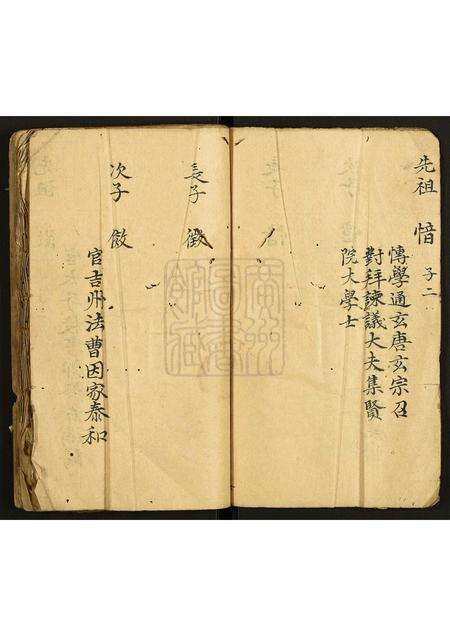 先祖 愔 子二
博學通玄唐玄宗召
對拜諫議大夫集賢
院大學士
長子 徴
次子 㒈
官吉州法曹因家泰和
廣州
圖書館